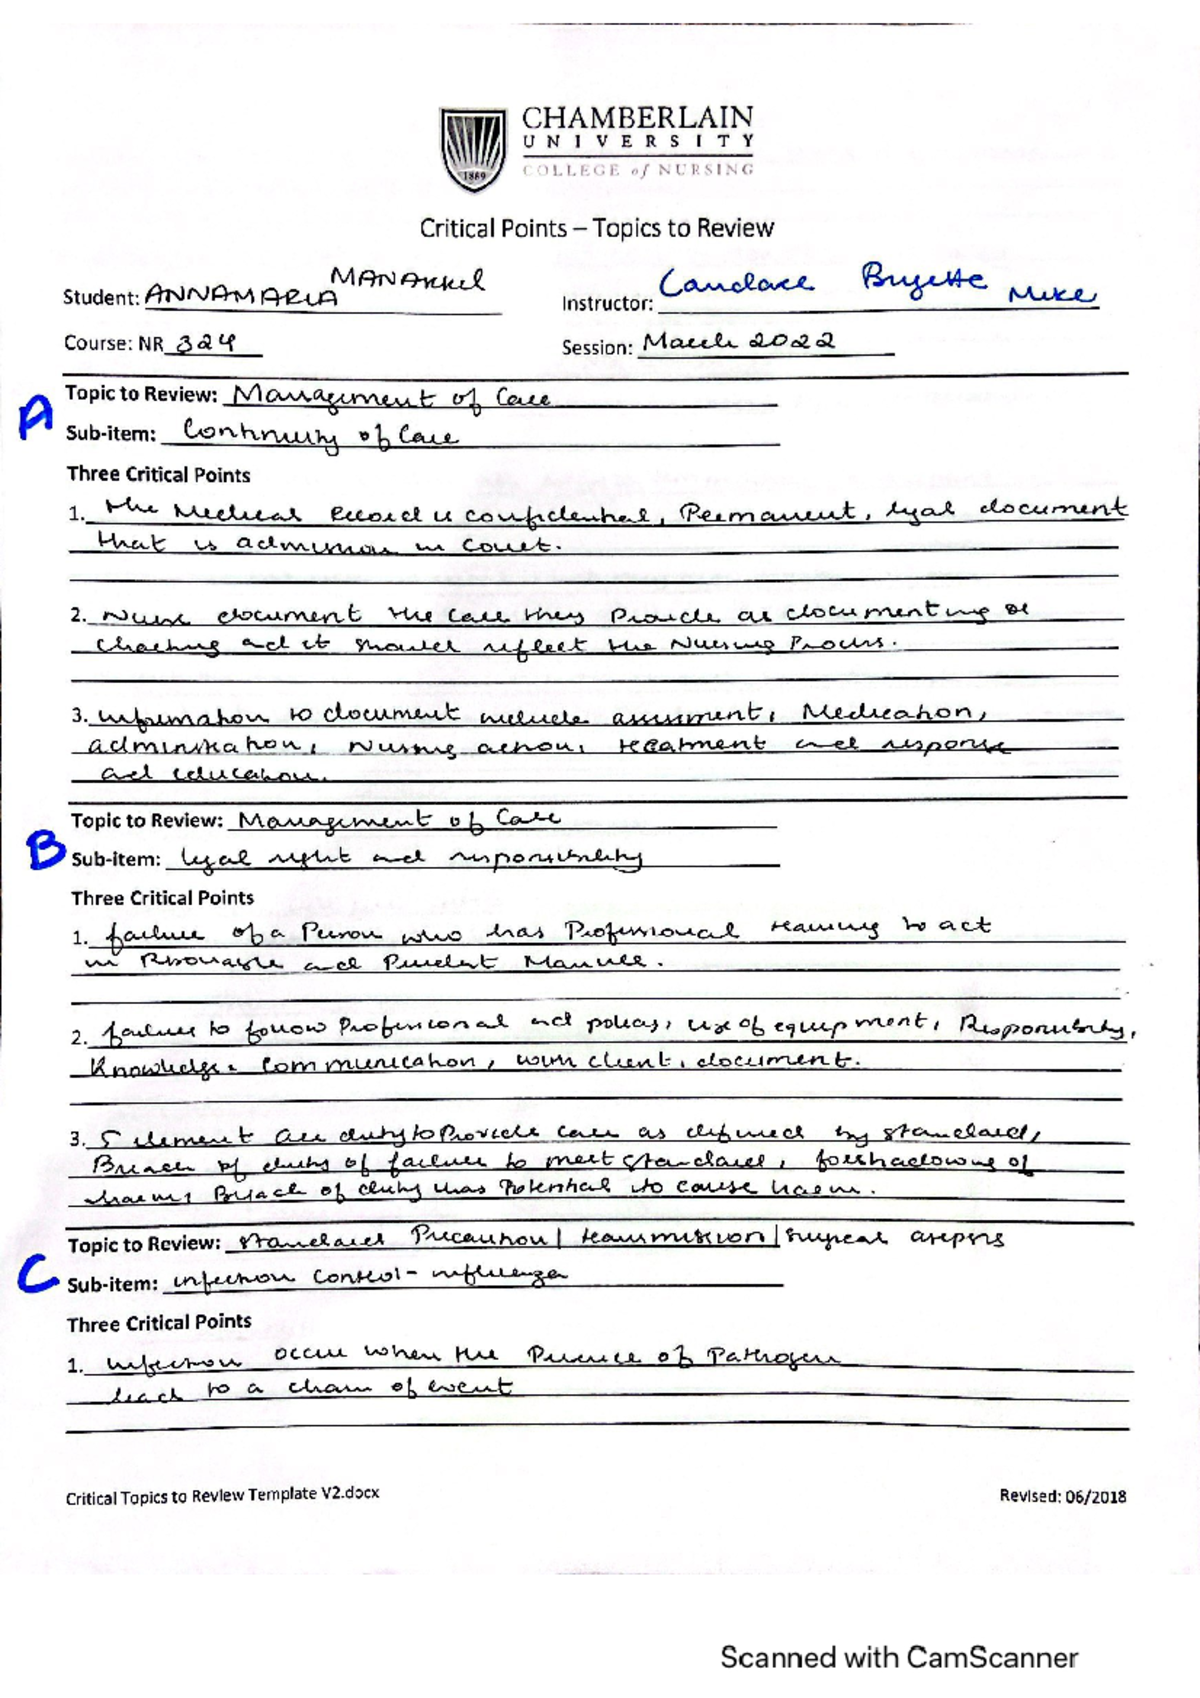 CHAMBERLAIN
UNIVERSITY
COLLEGE of NURSING
1889
Critical Points – Topics to Review
Student: ANNAMARIA MANAKKEL
Instructor: Candace Brigette Mike
Course: NR 324
Session: March 2022
A
Topic to Review: Management of Care
Sub-item: Continuity of Care
Three Critical Points
1. the Medical Record is confidential, Permanent, legal document
that is admission in Court.
2. Nurse document the Care they Provide as documenting or
charting and it should reflect the Nursing Process.
3. information to document include assessment, Medication,
administration, Nursing action, treatment and response
and education.
B
Topic to Review: Management of Care
Sub-item: legal right and responsibility
Three Critical Points
1. failure of a Person who has Professional training to act
in Resonable and Prudent Manner.
2. failure to follow Professional and policies, use of equipment, Responsibility,
Knowledge. Communication, with client, document.
3. 5 element are duty to Provide care as defined by standard,
Breach of duty of failure to meet standard, foeshadowing of
harm, Breach of duty has Potential to cause harm.
C
Topic to Review: standard Precaution | transmission | Surgical asepsis
Sub-item: infection control - influenza
Three Critical Points
1. infection occur when the Presence of Pathogen
lead to a chain of event
Critical Topics to Review Template V2.docx
Revised: 06/2018
Scanned with CamScanner